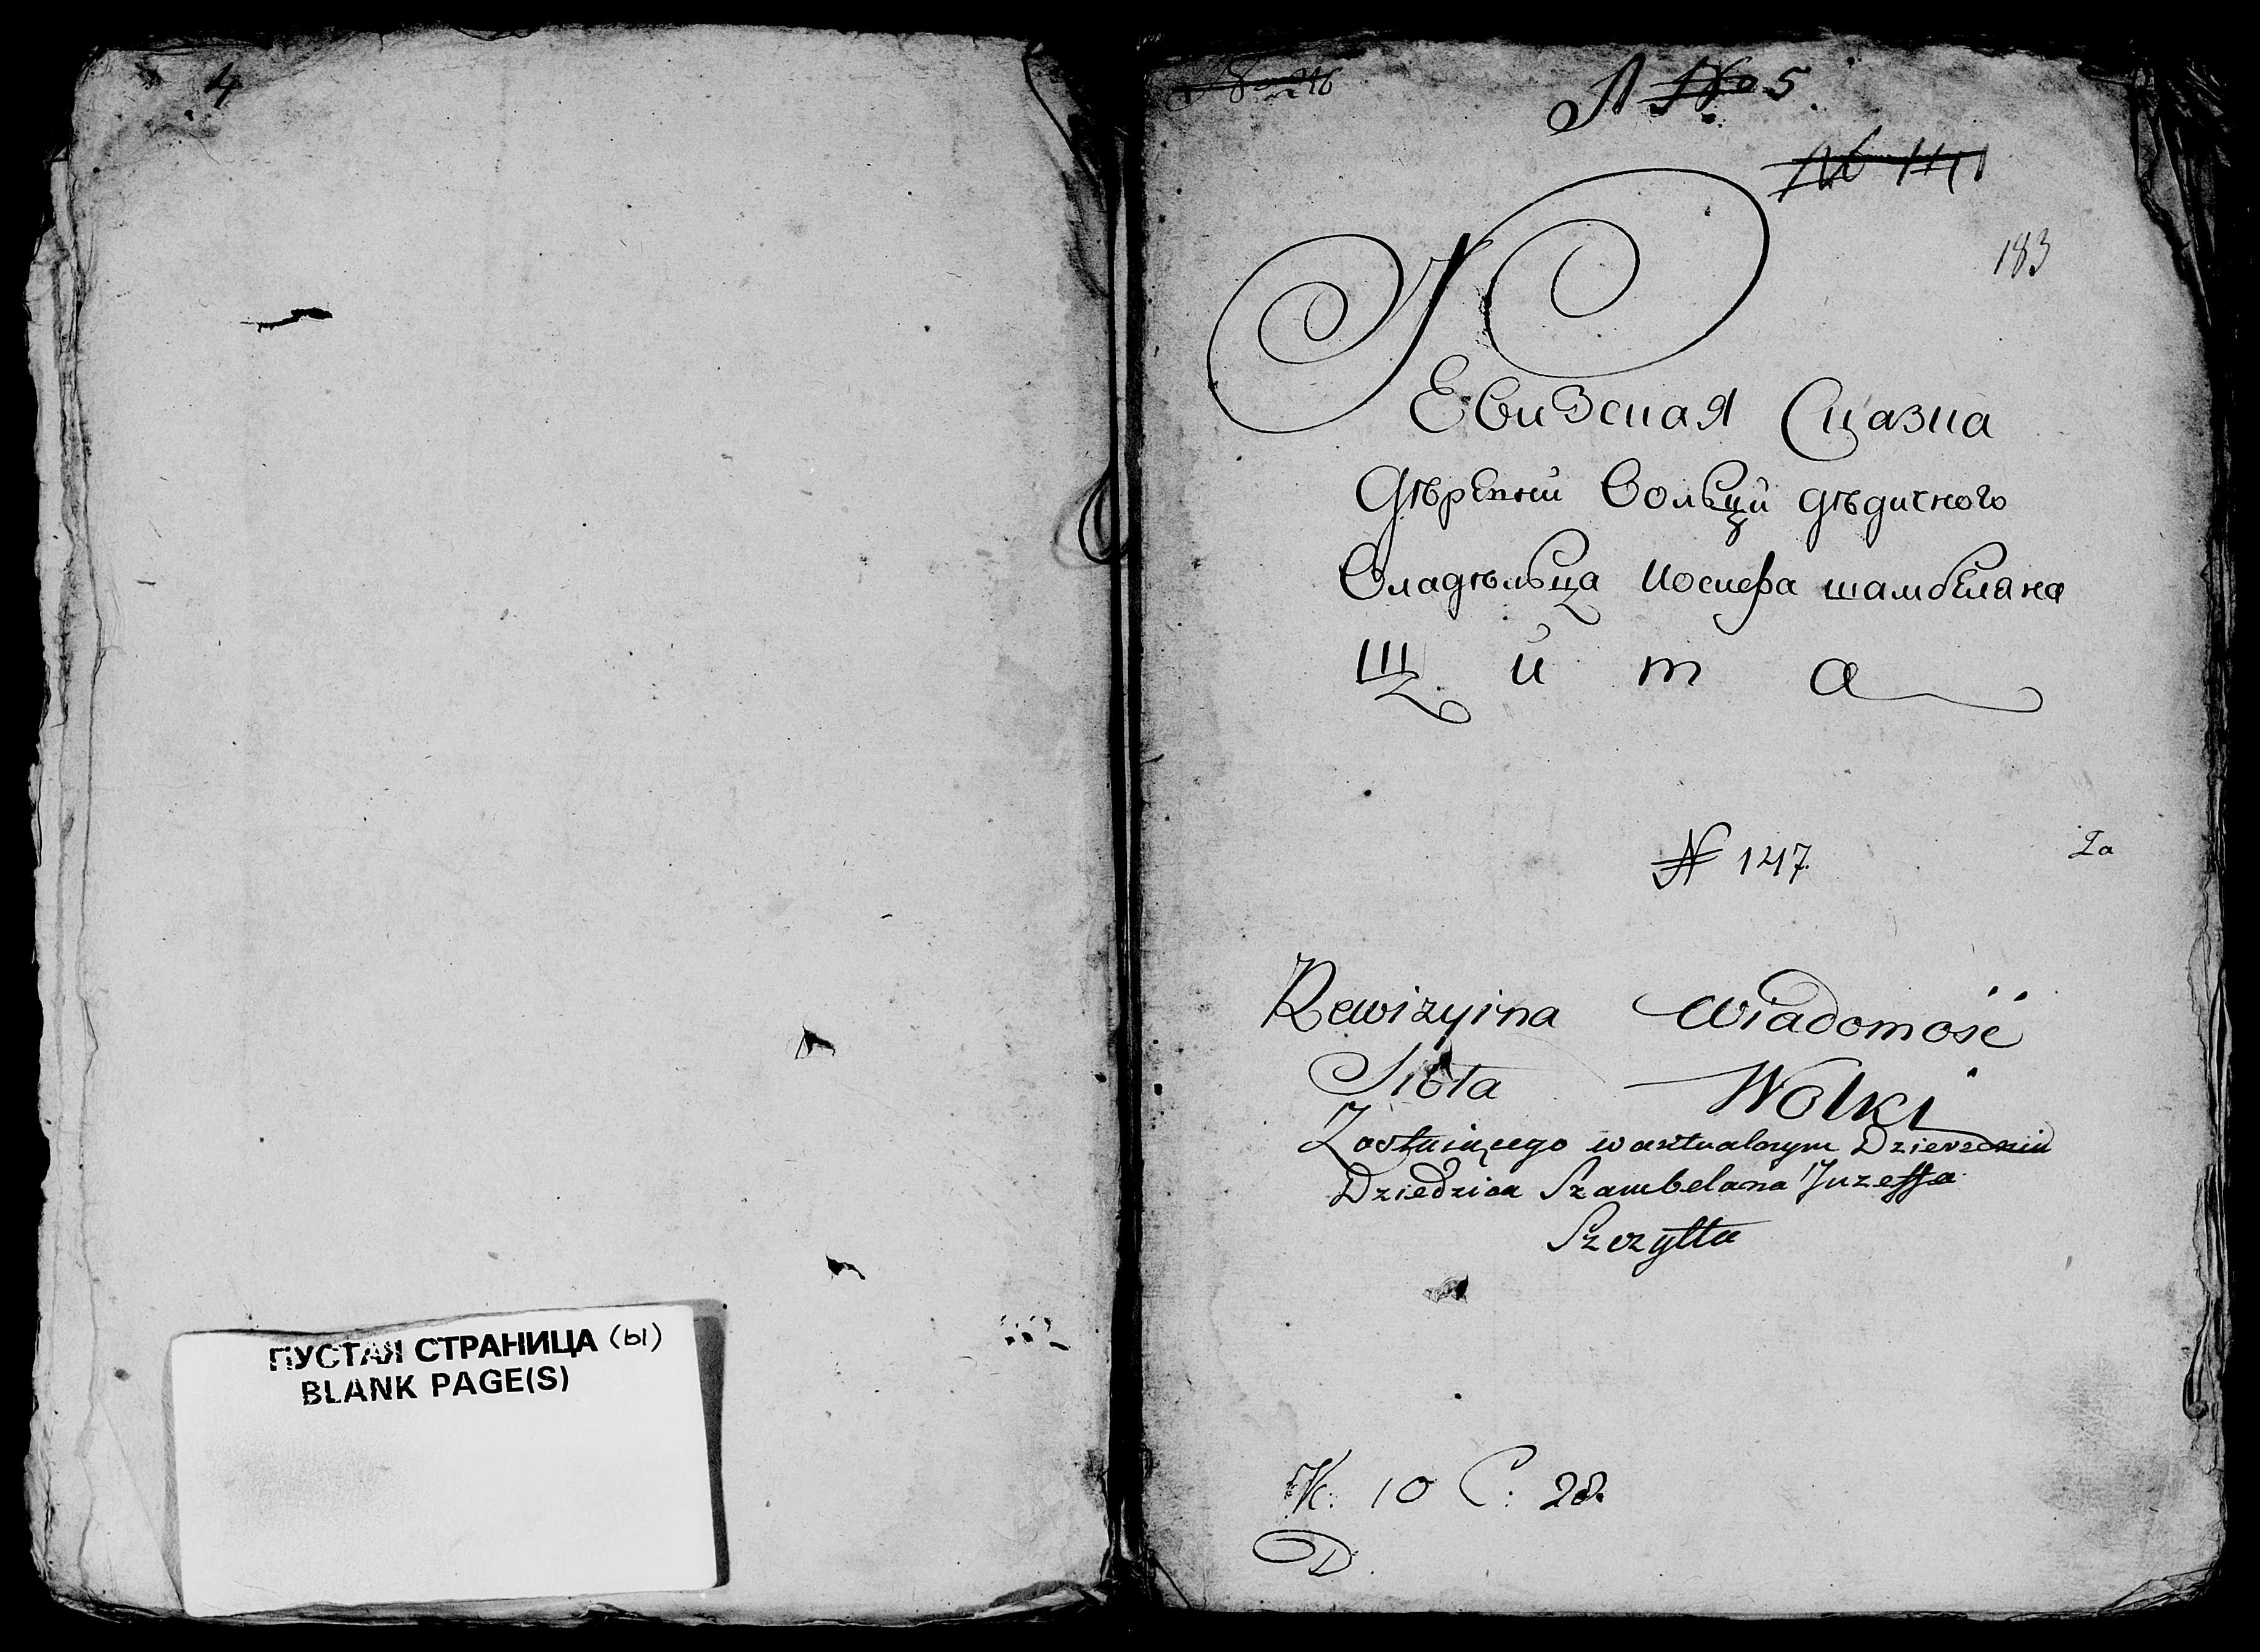 4
ПУСТАЯ СТРАНИЦА (ы)
BLANK PAGE(S)
№ 5.
183
Ревизская Сказка
Дѣревни Вольки дѣдичного
Владѣльца Иосифа шамбеляна
Щ и т а
№ 147
2a
Rewizyina Wiadomość
Sioła Wolki
Zostaiącego w aktualnym Dzierżeniu
Dziedzica Szambelana Juzeffa
Szczytta
K: 10 C: 28.
D.